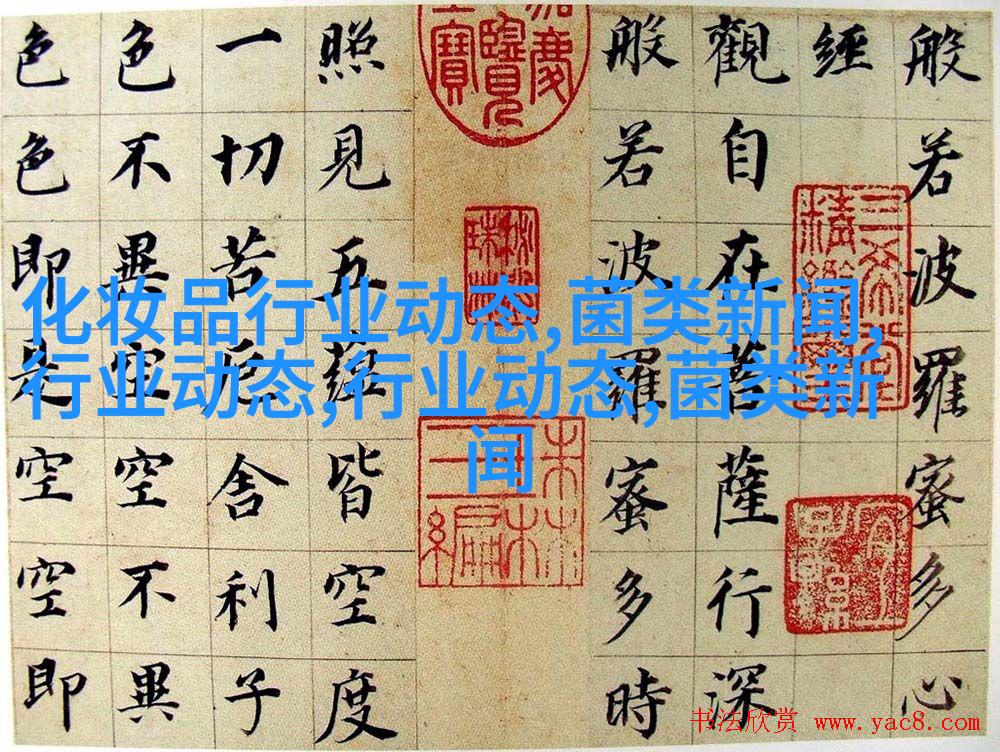 般若波羅蜜多心
經
觀自在菩薩行深
般若波羅蜜多時
照見五蘊皆空度
一切苦厄舍利子
色不異空空不異
色色即是空空即
化妆品行业动态,菌类新闻,
行业动态,行业动态,菌类新
闻
书法欣赏 www.yac8.com